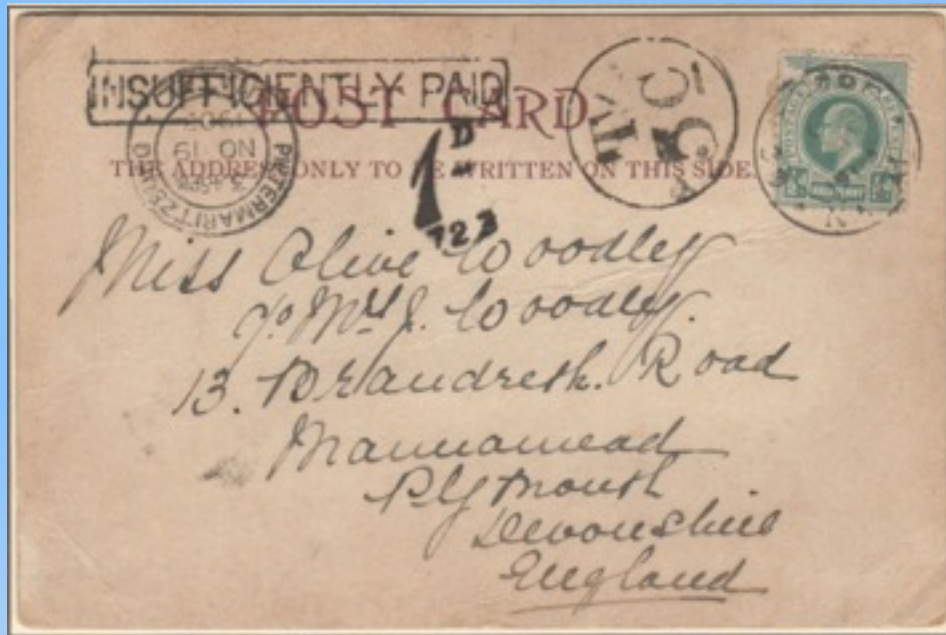 INSUFFICIENTLY PAID
POST CARD
THE ADDRESS ONLY TO BE WRITTEN ON THIS SIDE.
PIETERMARITZBURG
NO 19
1 D
723
5C
T
POSTAGE
Miss Olive Woodley
c/o Mrs J. Woodley.
13. Brandreth. Road
Mannamead
Plymouth
Devonshire
England